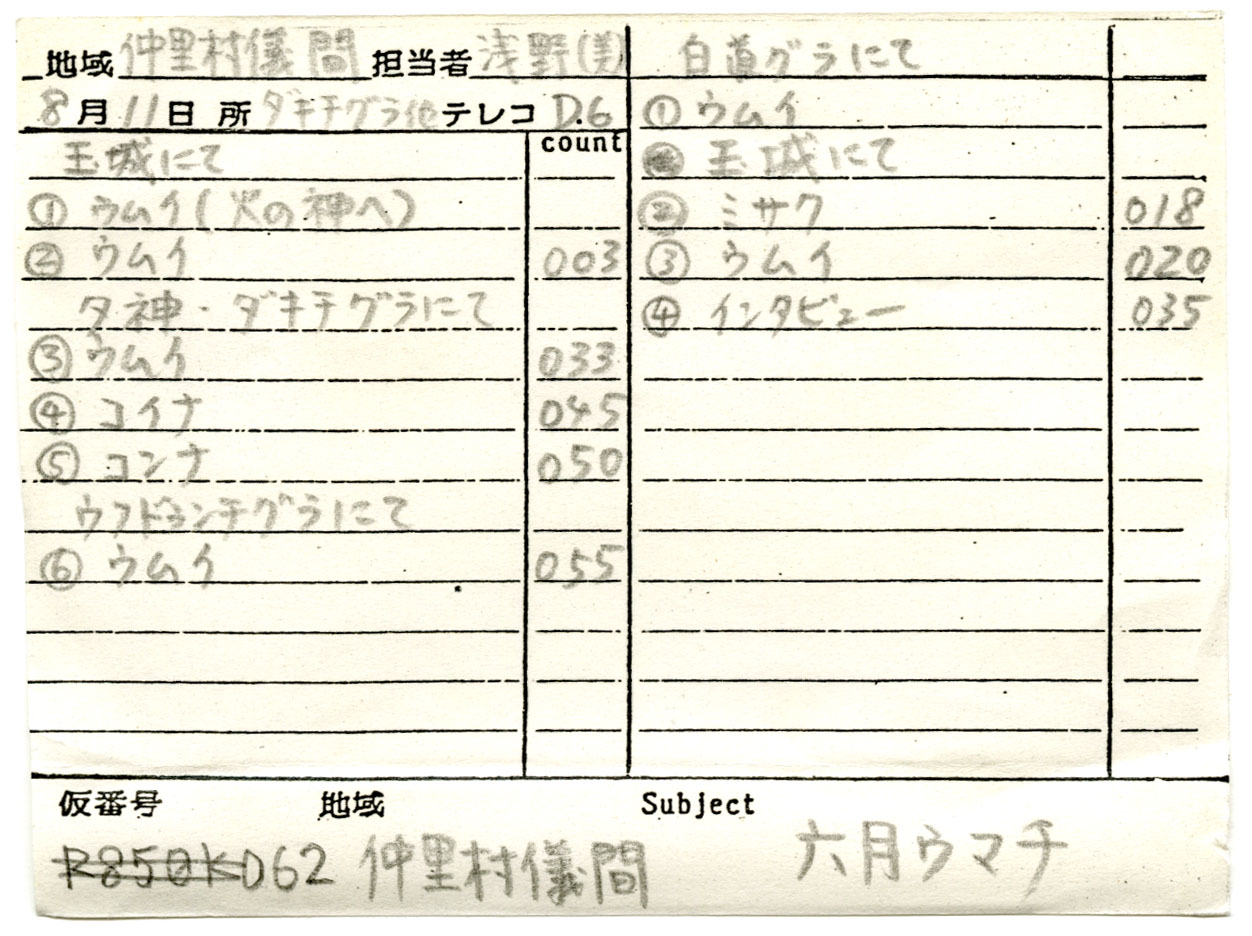 地域 仲里村儀間 担当者 浅野(美)
8月11日 所 ダキチグラ他 テレコ D.6
count
玉城にて
① ウムイ(火の神へ)
② ウムイ 003
夕神・ダキチグラにて
③ ウムイ 033
④ コイナ 045
⑤ コンナ 050
ウフドゥンチグラにて
⑥ ウムイ 055
白道グラにて
① ウムイ
玉城にて
② ミサク 018
③ ウムイ 020
④ インタビュー 035
仮番号 地域 Subject
R850KD62 仲里村儀間 六月ウマチ